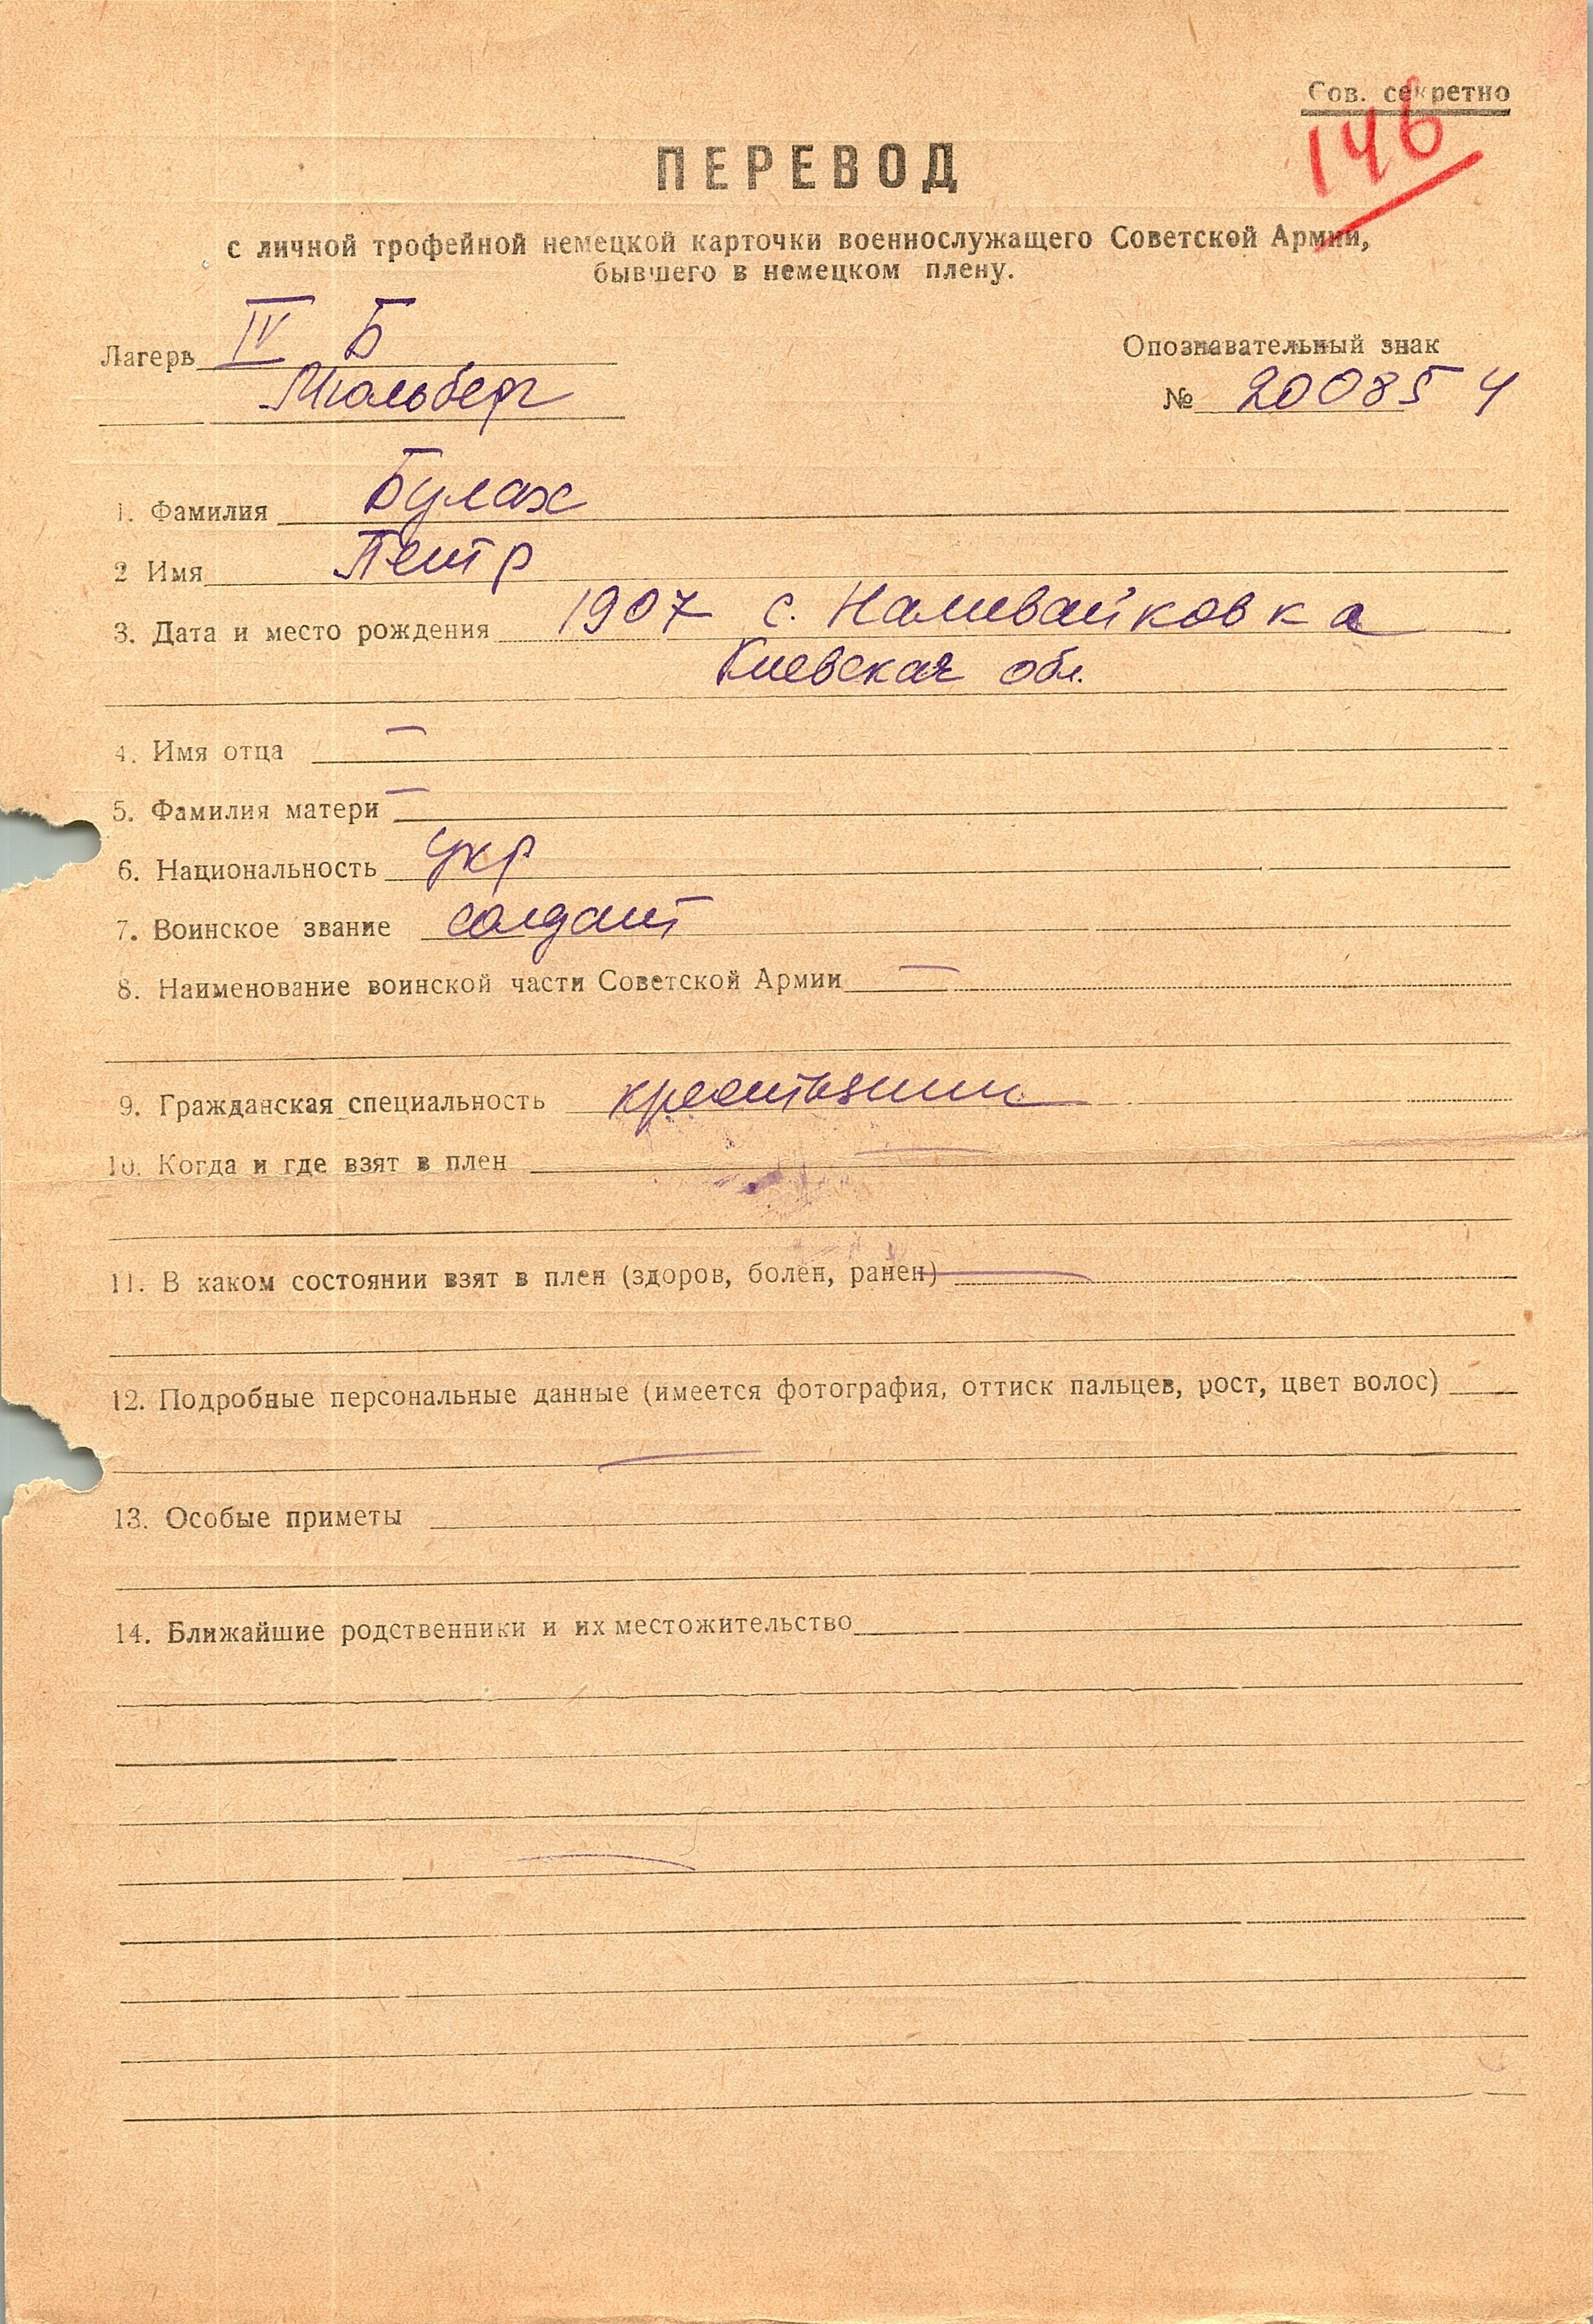 Сов. секретно
146
ПЕРЕВОД
с личной трофейной немецкой карточки военнослужащего Советской Армии,
бывшего в немецком плену.
Лагерь IV Б
Мюльберг
Опознавательный знак
№ 200854
1. Фамилия Булах
2 Имя Петр
3. Дата и место рождения 1907 с. Наливайковка
Киевская обл.
4. Имя отца —
5. Фамилия матери —
6. Национальность укр
7. Воинское звание солдат
8. Наименование воинской части Советской Армии —
9. Гражданская специальность крестьянин
10. Когда и где взят в плен —
11. В каком состоянии взят в плен (здоров, болен, ранен) —
12. Подробные персональные данные (имеется фотография, оттиск пальцев, рост, цвет волос)
—
13. Особые приметы
14. Ближайшие родственники и их местожительство
—